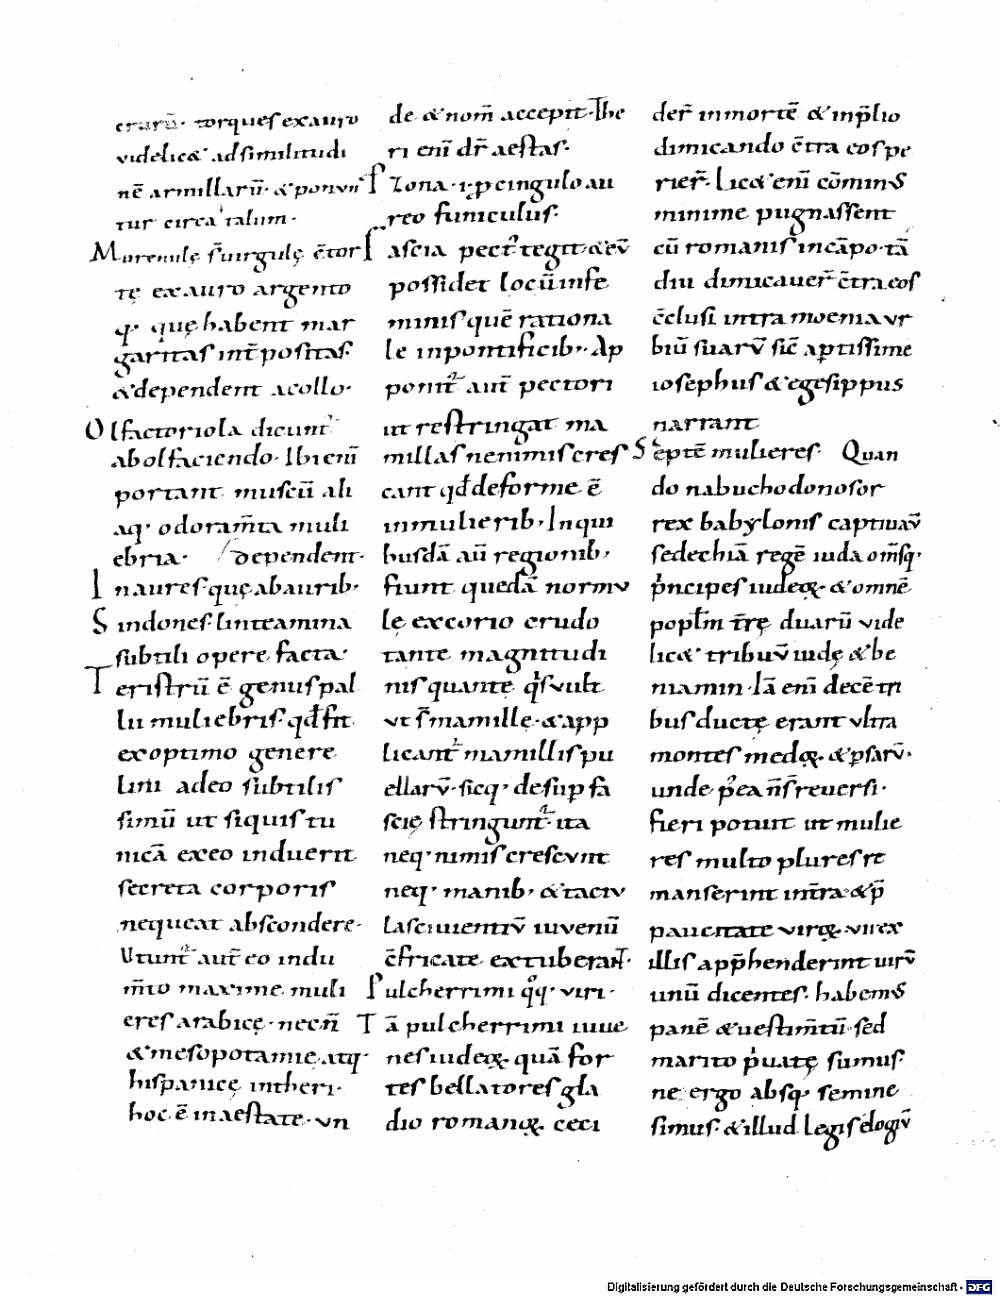 cruru̅· torques ex auro
videlic& ad similitudi
ne̅ armillaru̅· & ponun
tur circa talum·
Morenulę s̅ uirgulę c̅tor
tę ex auro argento
q· quę habent mar
garitas int̅ positas·
& dependent a collo·
Olfactoriola dicunt᷑
ab olfaciendo· Ibi eni̅
portant muscu̅ ali
aq· odoram̅ta muli
ebria· dependent·
Inaures· quę ab aurib·
Sindones· linteamina
subtili opere facta·
Teristru̅ e̅ genus pal
lii muliebris· qđ fit
ex optimo genere
lini adeo subtilis
simu̅ ut si quis tu
nica̅ ex eo induerit
secreta corporis
nequeat abscondere·
Utunt᷑ aut̅ eo indu
m̅to maxime muli
eres arabicę· necn̅
& mesopotamię atq·
hispanicę in theri·
hoc e̅ in aestate· vn
de & nom̅ accepit· The
ri eni̅ dr̅ aestas·
Zona· i· p̲cingulo au
reo funiculus·
Fascia pect᷑ tegit· & eu̅
possidet locu̅ in fe
minis que̅ rationa
le in pontificib·· Ap
ponit᷑ aut̅ pectori
ut restringat ma
millas ne nimis cres
cant qđ deforme e̅
in mulierib· In qui
busda̅ au̅ regionib·
fiunt queda̅ normu
lę ex corio crudo
tantę magnitudi
nis quantę q̓s uult
vt s̅ mamille· & app
licant᷑ mamillis pu
ellaru̅· sicq· desup̲ fa
scię stringunt᷑· ita
neq· nimis crescunt
neq· manib· & tactu
lasciuientiu̅ iuuenu̅
c̅fricate extuberant·
Pulcherrimi q̊q· viri·
Ta̅ pulcherrimi iuue
nes iudeoꝝ· qua̅ for
tes bellatores gla
dio romanoꝝ· ceci
der̅ in morte̅ & in p̅lio
dimicando c̅tra eos pe
rier̅· lic& eni̅ co̅minus
minime pugnassent
cu̅ romanis in ca̅po· ta̅
diu dimicauer̅ c̅tra eos
c̅clusi intra moenia ur
biu̅ suaru̅ sic̅ aptissime
iosephus & egesippus
narrant
Septe̅ mulieres· Quan
do nabuchodonosor
rex babylonis captiuau̅
sedechia̅ rege̅ iuda om̅sq·
p̓ncipes iudeoꝝ· & omne̅
popl̅m t̅rę duaru̅ vide
lic& tribuu̅ iudę & be
niamin· Ia̅ eni̅ dece̅ tri
bus ductę erant ultra
montes medoꝝ· & p̲saru̅·
unde p̓ea n̅ s̅ reuersi·
fieri potuit ut mulie
res multo plures re
manserint int̅ra· & p̅
paucitate viroꝝ· vii ex
illis app̅henderint uiru̅
unu̅ dicentes· habemus
pane̅ & uestim̅tu̅· sed
marito p̓uatę sumus·
ne ergo absq· semine
simus· & illud legis elogiu̅
Digitalisierung gefördert durch die Deutsche Forschungsgemeinschaft · DFG